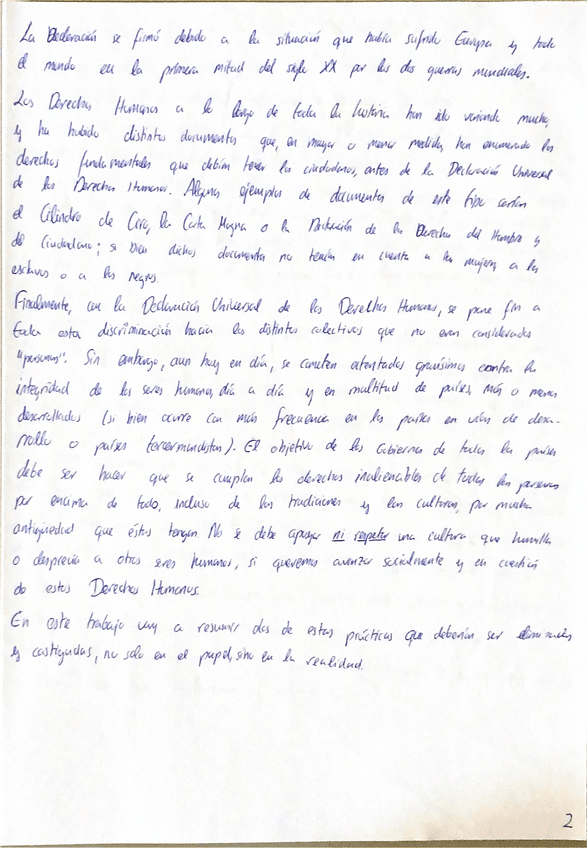 La Declaración se firmó debido a la situación que había sufrido Europa y todo
el mundo en la primera mitad del siglo XX por las dos guerras mundiales.
Los Derechos Humanos a lo largo de toda la historia han ido variando mucho,
y ha habido distintos documentos que, en mayor o menor medida, han enumerado los
derechos fundamentales que debían tener los ciudadanos, antes de la Declaración Universal
de los Derechos Humanos. Algunos ejemplos de documentos de este tipo serían
el Cilindro de Ciro, la Carta Magna o la Declaración de los Derechos del Hombre y
del Ciudadano; si bien dichos documentos no tenían en cuenta a las mujeres a los
esclavos o a los negros.
Finalmente, con la Declaración Universal de los Derechos Humanos, se pone fin a
toda esta discriminación hacia los distintos colectivos que no eran considerados
"personas". Sin embargo, aun hoy en día, se cometen atentados gravísimos contra la
integridad de los seres humanos, día a día y en multitud de países, más o menos
desarrollados (si bien ocurre con más frecuencia en los países en vías de desa-
rrollo o países tercermundistas). El objetivo de los Gobiernos de todos los países
debe ser hacer que se cumplan los derechos inalienables de todas las personas
por encima de todo, incluso de las tradiciones y las culturas, por mucha
antigüedad que éstas tengan. No se debe apoyar ni respetar una cultura que humilla
o desprecia a otros seres humanos, si queremos avanzar socialmente y en cuestión
de estos Derechos Humanos.
En este trabajo voy a resumir dos de estas prácticas que deberían ser eliminadas
y castigadas, no solo en el papel, sino en la realidad.
2